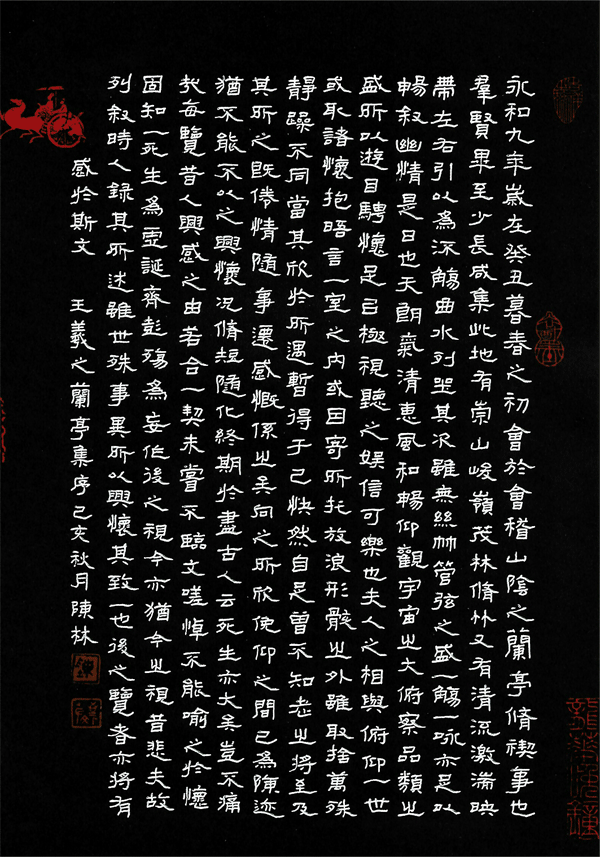 永和九年歲在癸丑暮春之初會於會稽山陰之蘭亭脩禊事也
羣賢畢至少長咸集此地有崇山峻嶺茂林脩竹又有清流激湍映
帶左右引以為流觴曲水列坐其次雖無絲竹管弦之盛一觴一詠亦足以
暢敘幽情是日也天朗氣清惠風和暢仰觀宇宙之大俯察品類之
盛所以遊目騁懷足以極視聽之娛信可樂也夫人之相與俯仰一世
或取諸懷抱唔言一室之內或因寄所托放浪形骸之外雖取捨萬殊
靜躁不同當其欣於所遇暫得于己快然自足曾不知老之將至及
其所之既倦情隨事遷感慨係之矣向之所欣俛仰之間已為陳迹
猶不能不以之興懷况脩短隨化終期於盡古人云死生亦大矣豈不痛
哉每覽昔人興感之由若合一契未嘗不臨文嗟悼不能喻之於懷
固知一死生為虛誕齊彭殤為妄作後之視今亦猶今之視昔悲夫故
列敘時人錄其所述雖世殊事異所以興懷其致一也後之覽者亦將有
感於斯文 王羲之蘭亭集序己亥秋月陳林